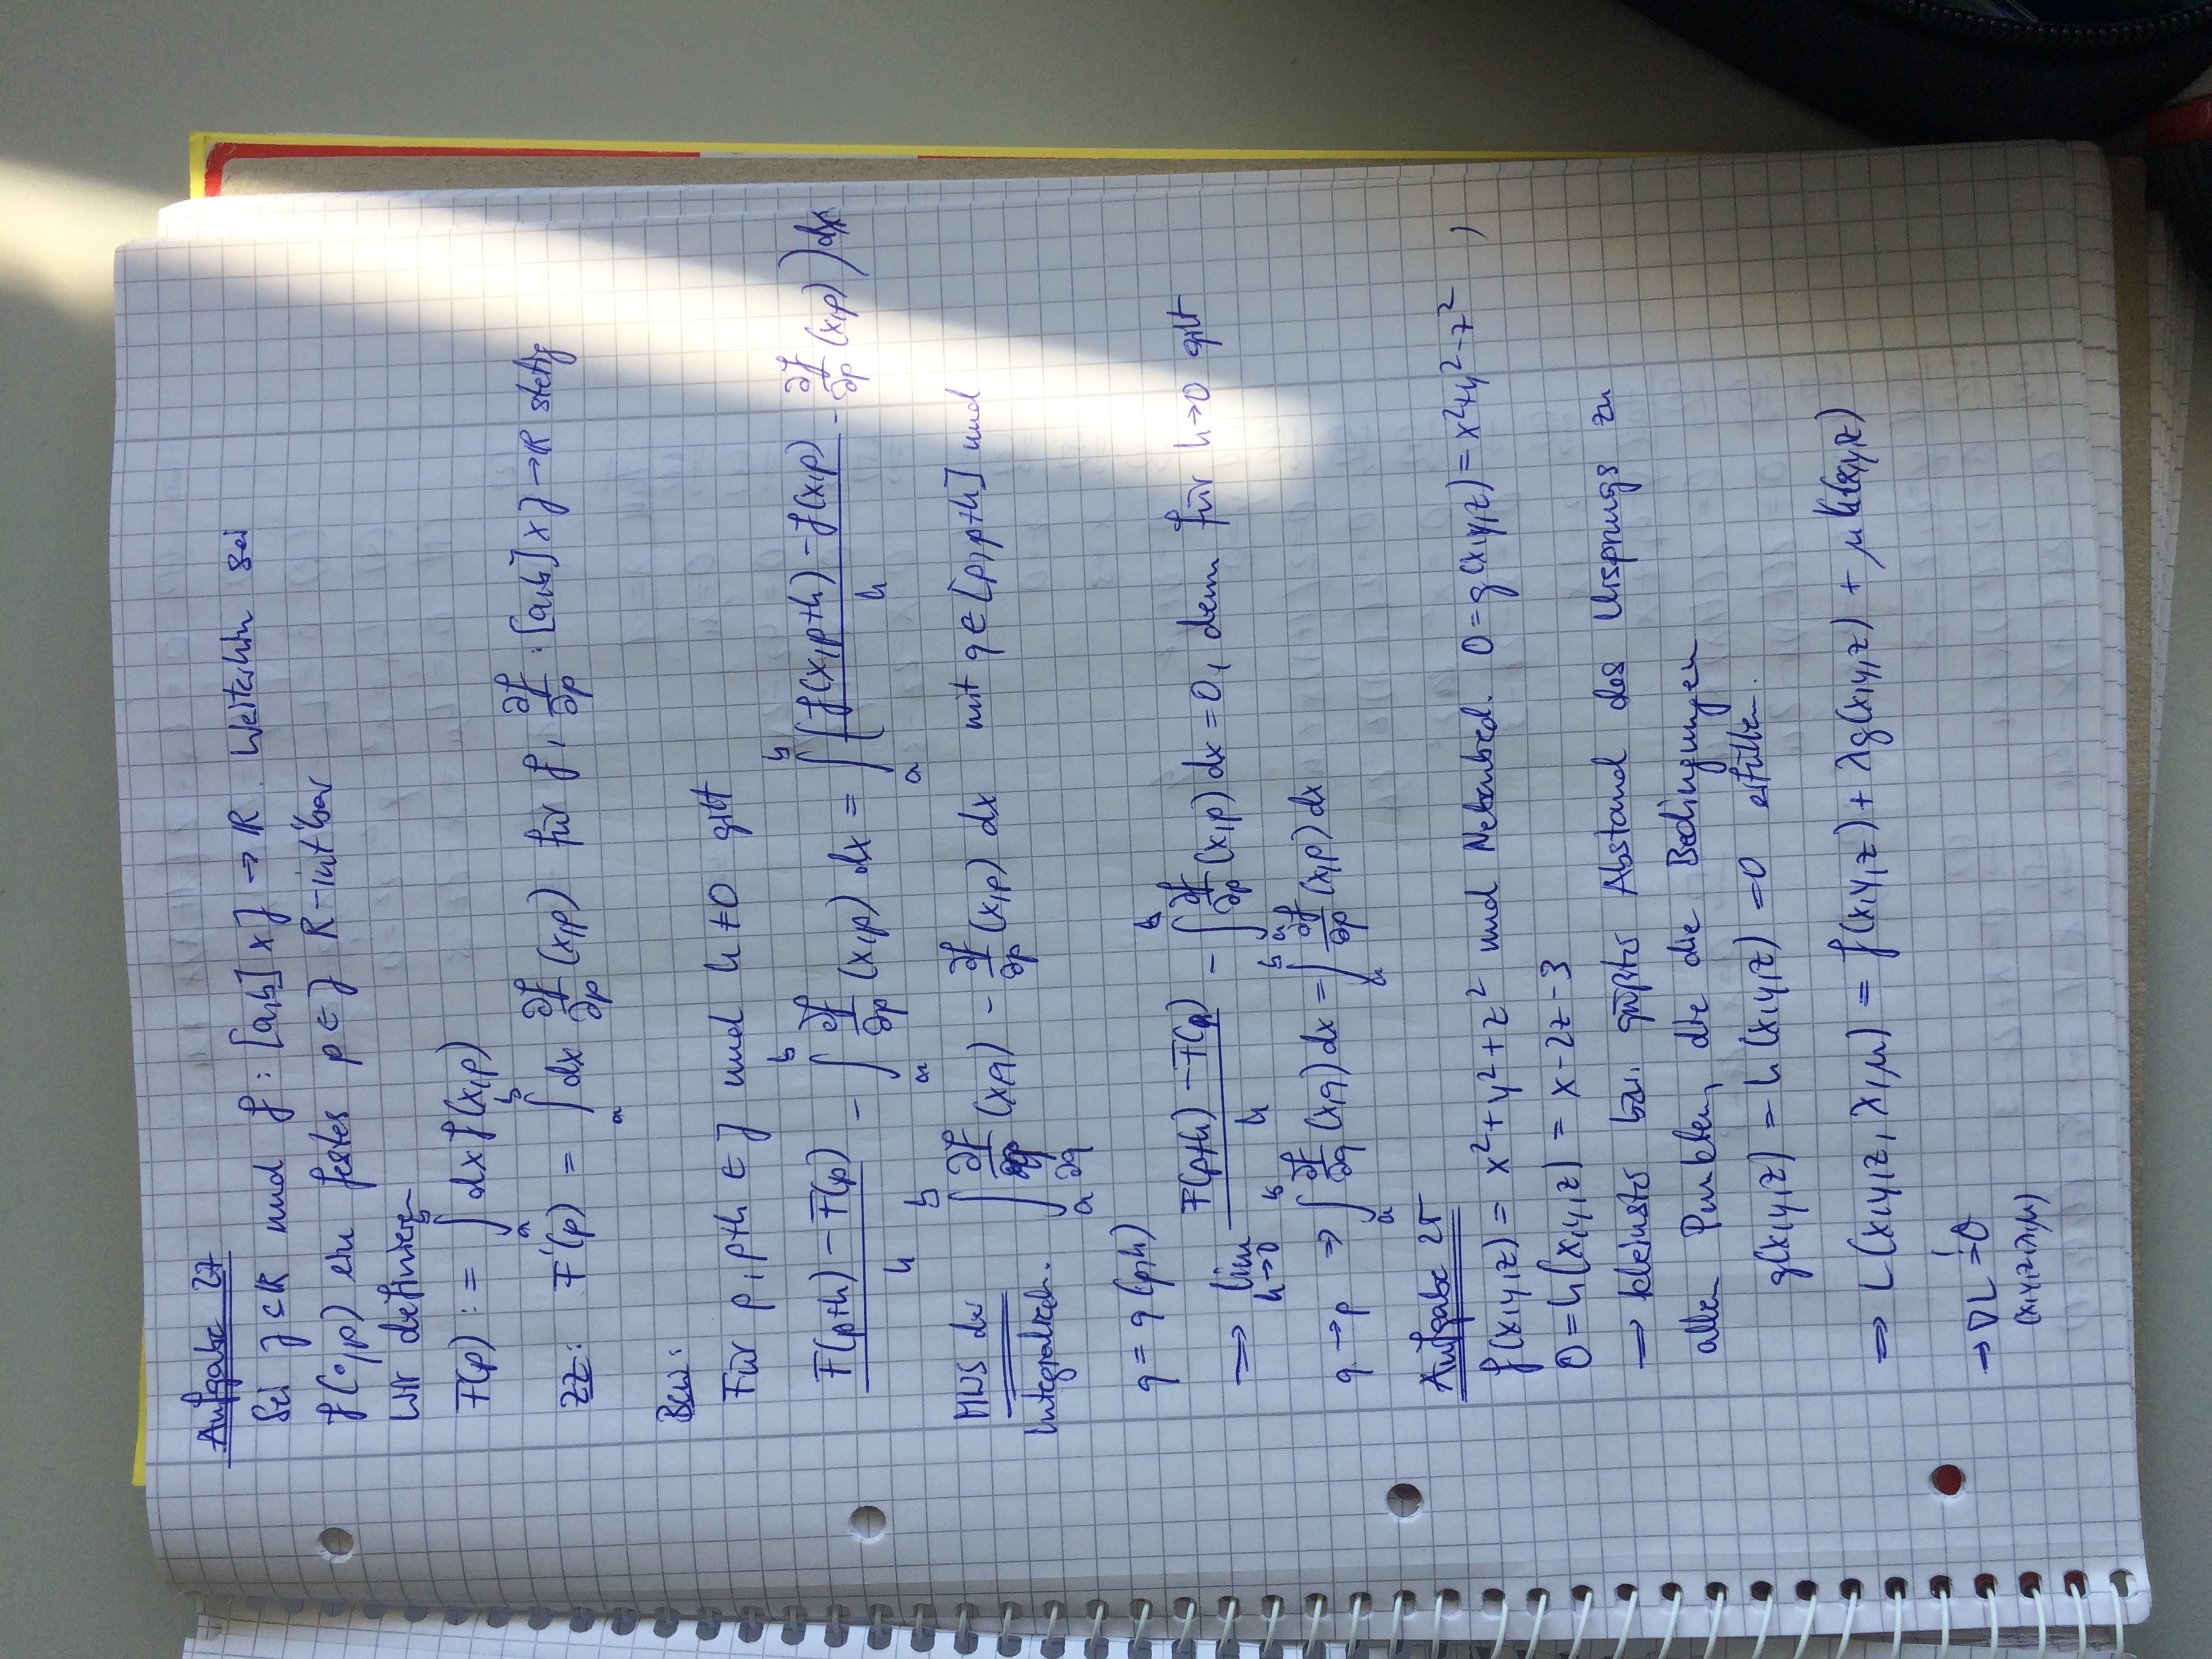 Aufgabe 27
Sei J ⊂ ℝ und f : [a,b] × J → ℝ. Weiterhin sei
f(•,p) ein festes p ∈ J R-int'bar
Wir definieren
F(p) := ∫_a^b dx f(x,p)
ZZ: F'(p) = ∫_a^b dx ∂f/∂p (x,p) für f, ∂f/∂p : [a,b] × J → ℝ stetig
Bew:
Für p, p+h ∈ J und h ≠ 0 gilt
(F(p+h) - F(p))/h - ∫_a^b ∂f/∂p (x,p) dx = ∫_a^b ( (f(x,p+h) - f(x,p))/h - ∂f/∂p (x,p) ) dx
MWS der Integralrech. ∫_a^b ∂f/∂q (x,q) - ∂f/∂p (x,p) dx mit q ∈ [p,p+h] und
q = q(p,h)
⇒ lim_{h→0} (F(p+h) - F(p))/h - ∫_a^b ∂f/∂p (x,p) dx = 0, denn für h→0 gilt
q → p ⇒ ∫_a^b ∂f/∂q (x,q) dx = ∫_a^b ∂f/∂p (x,p) dx
Aufgabe 25
f(x,y,z) = x² + y² + z² und Nebenbed. 0 = g(x,y,z) = x² + y² - z² ,
0 = h(x,y,z) = x - 2z - 3
→ kleinster bzw. größter Abstand des Ursprungs zu
allen Punkten, die die Bedingungen
g(x,y,z) = h(x,y,z) = 0 erfüllen.
⇒ L(x,y,z,λ,μ) = f(x,y,z) + λg(x,y,z) + μ h(x,y,z)
→ ∇L != 0
(x,y,z,λ,μ)